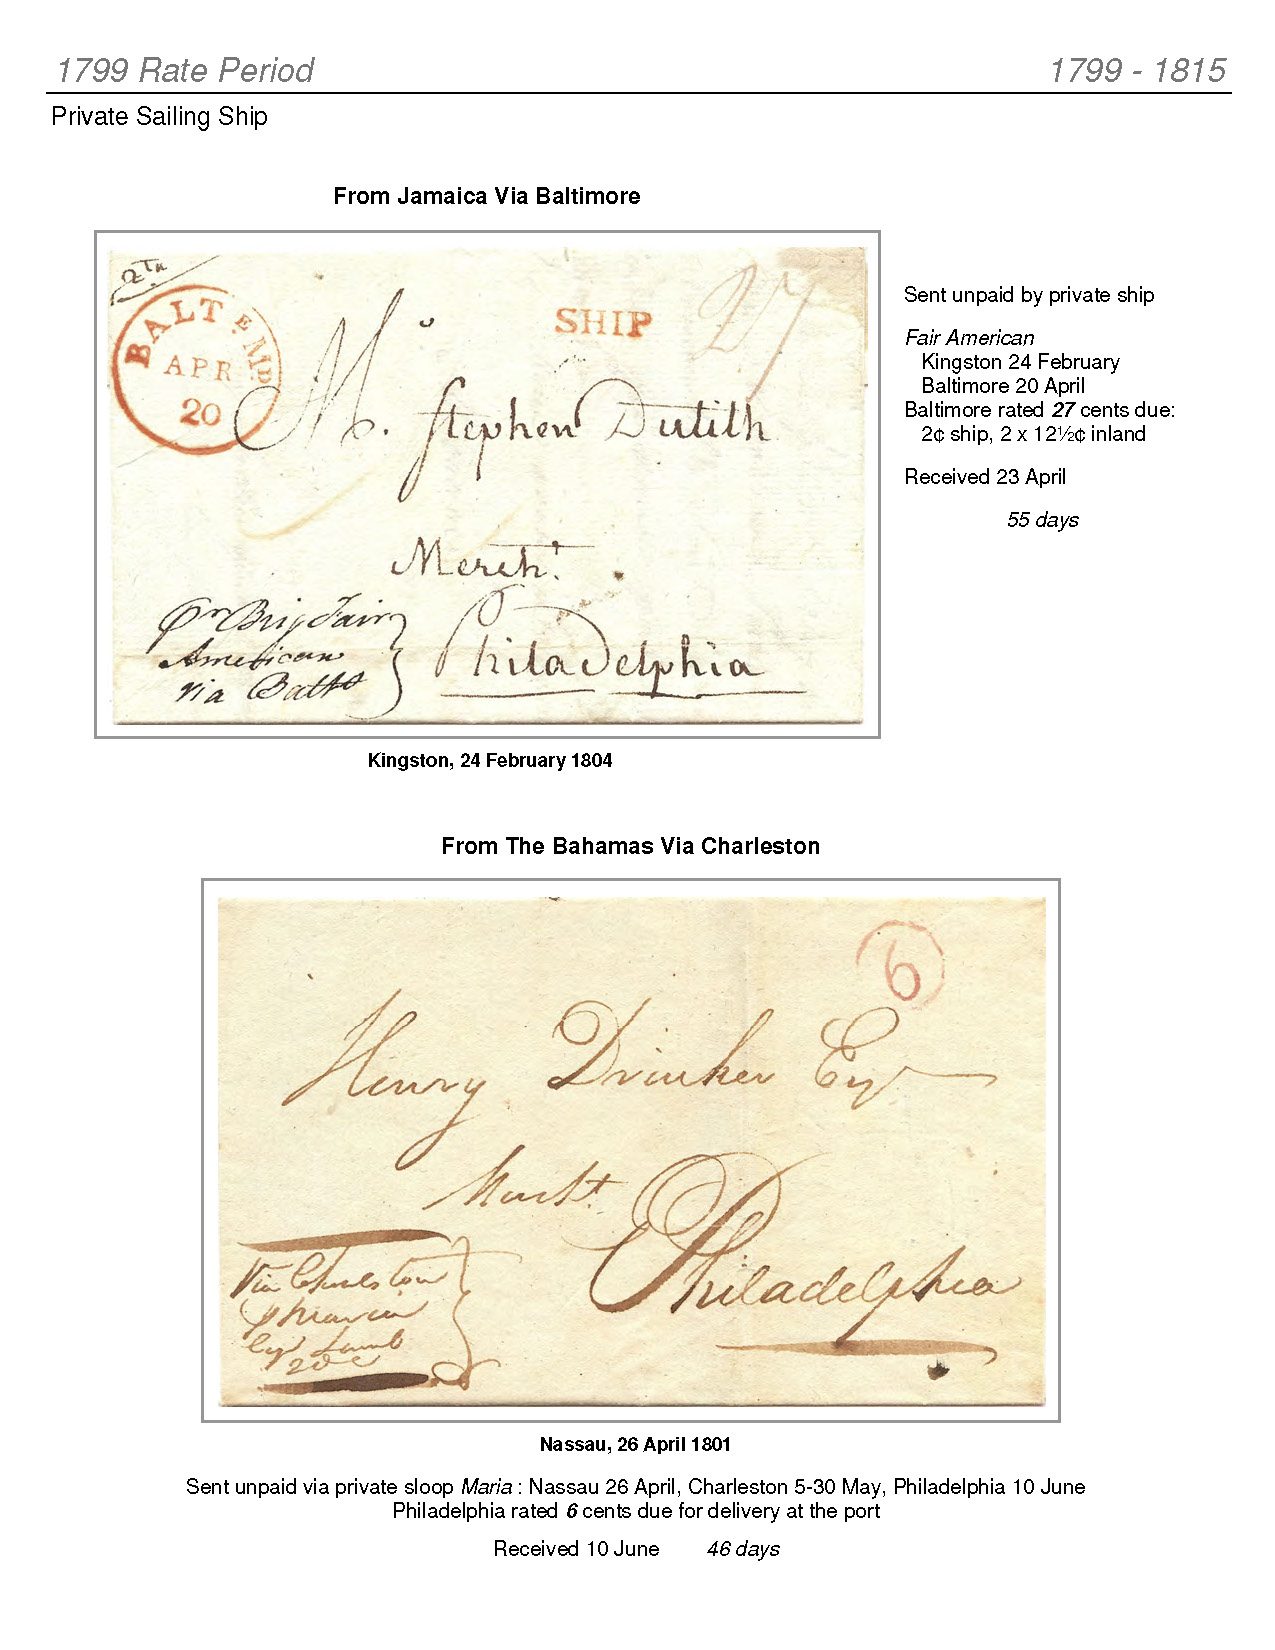 1799 Rate Period 1799 - 1815
Private Sailing Ship
From Jamaica Via Baltimore
BALTE. MD.
APR
20
SHIP
27
Mr. Stephen Dutilh
Mercht.
Philadelphia
pr Brig Fair
American
via Balto
Sent unpaid by private ship
Fair American
Kingston 24 February
Baltimore 20 April
Baltimore rated 27 cents due:
2¢ ship, 2 x 12½¢ inland
Received 23 April
55 days
Kingston, 24 February 1804
From The Bahamas Via Charleston
6
Henry Drinker Esqr
Philadelphia
Via Charleston
p Maria
Lamb
Nassau, 26 April 1801
Sent unpaid via private sloop Maria : Nassau 26 April, Charleston 5-30 May, Philadelphia 10 June
Philadelphia rated 6 cents due for delivery at the port
Received 10 June 46 days